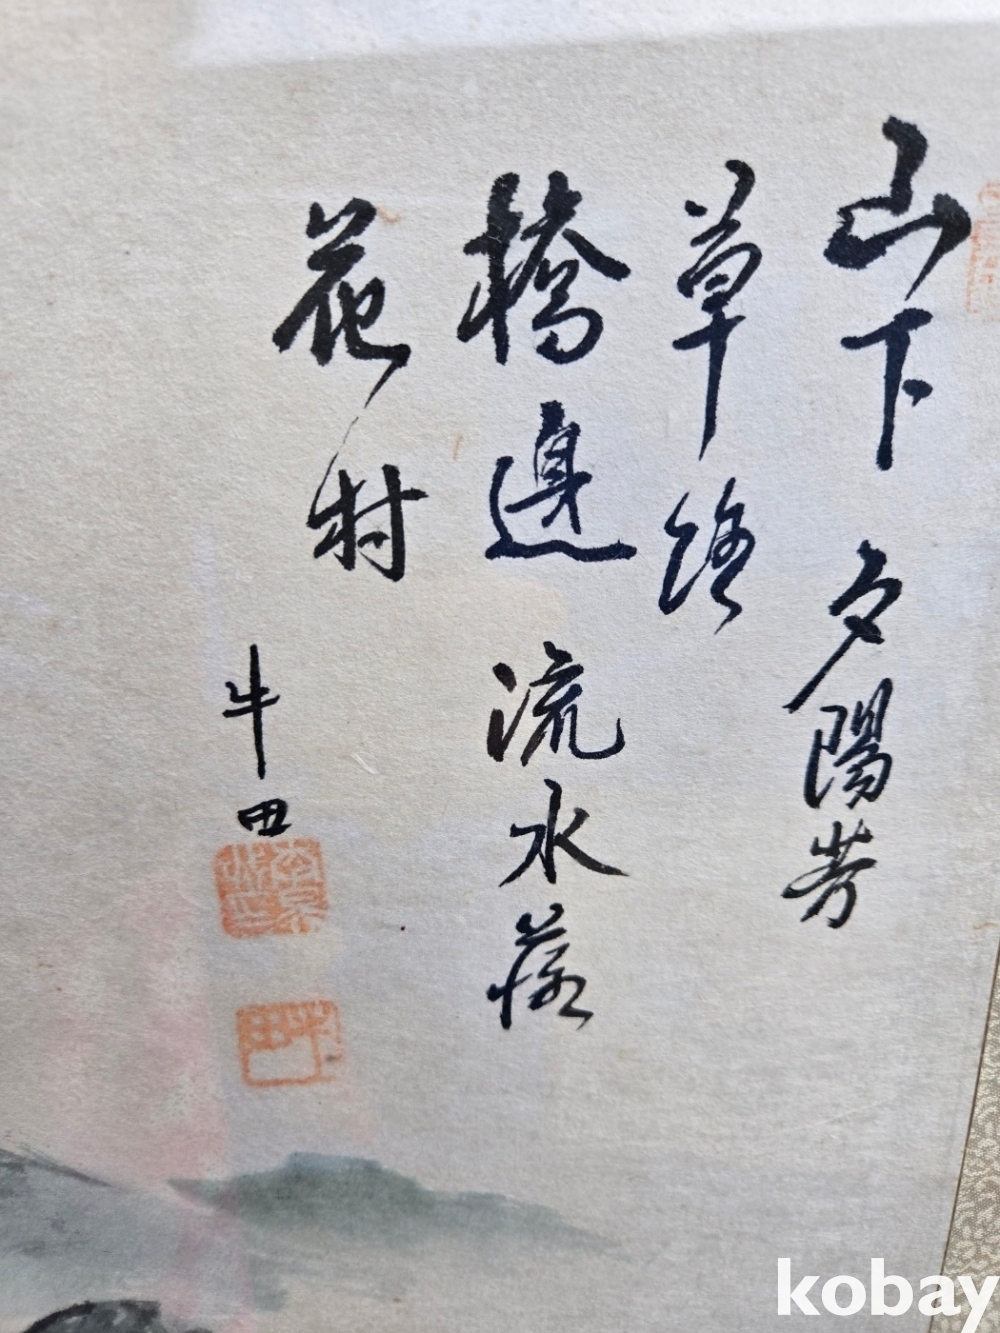 山下夕陽芳
草路
橋邊流水落
花村
牛田
牛田
kobay